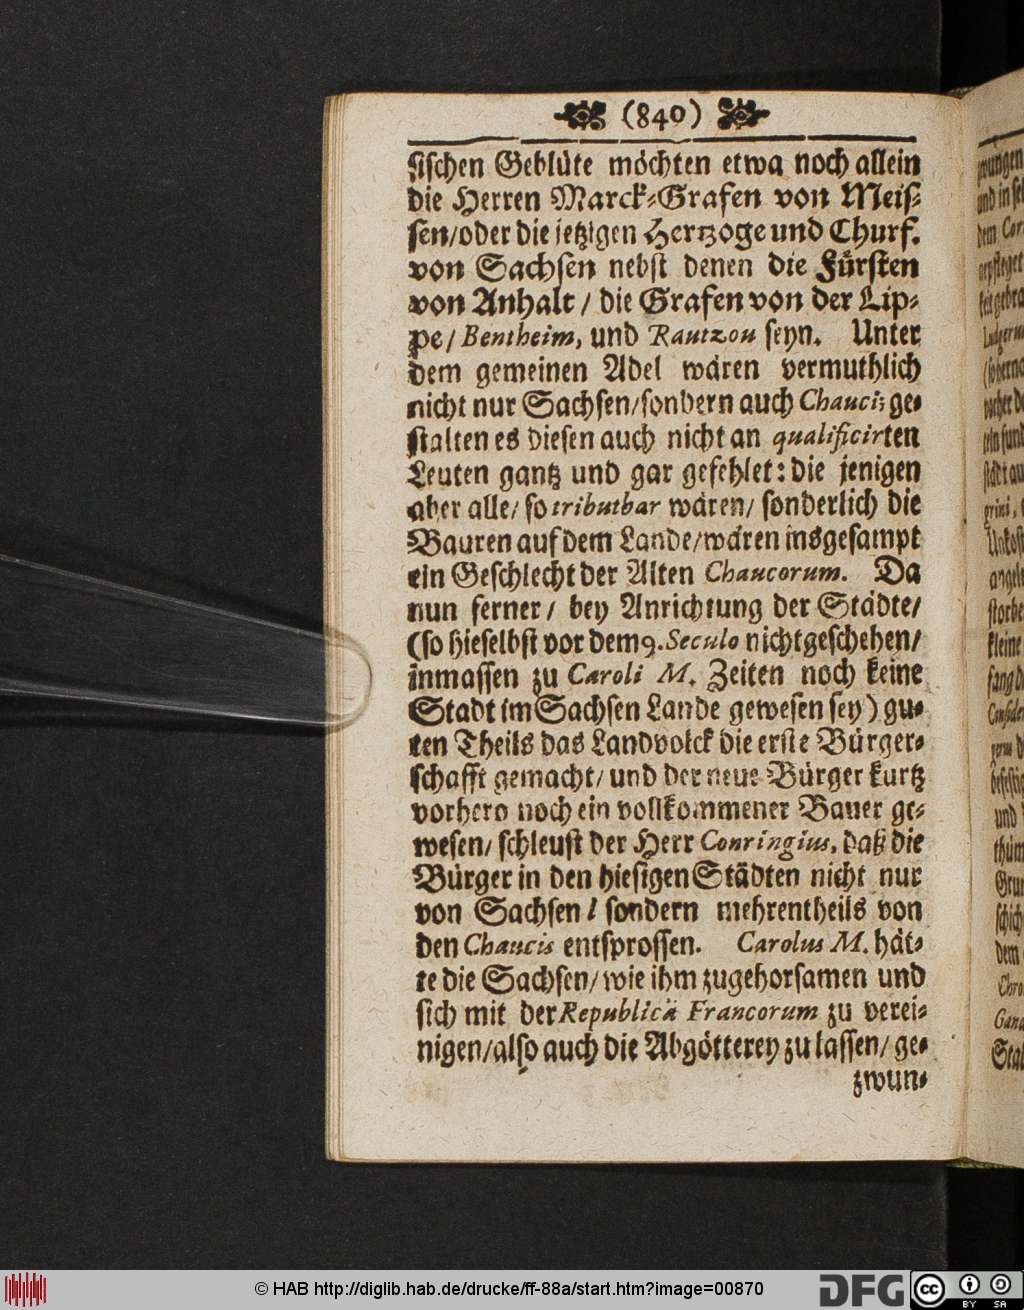 (840)
sischen Geblüte möchten etwa noch allein
die Herren Marck-Grafen von Meis-
sen/oder die jetzigen Hertzoge und Churf.
von Sachsen nebst denen die Fürsten
von Anhalt / die Grafen von der Lip-
pe/ Bentheim, und Rautzou seyn. Unter
dem gemeinen Adel wären vermuthlich
nicht nur Sachsen/sondern auch Chauci; ge-
stalten es diesen auch nicht an qualificirten
Leuten gantz und gar gefehlet: die jenigen
aber alle/ so tributbar wären/ sonderlich die
Bauren auf dem Lande/wären insgesampt
ein Geschlecht der Alten Chaucorum. Da
nun ferner/ bey Anrichtung der Städte/
(so hieselbst vor dem 9. Seculo nicht geschehen/
inmassen zu Caroli M. Zeiten noch keine
Stadt im Sachsen Lande gewesen sey) gu-
ten Theils das Landvolck die erste Bürger-
schafft gemacht/ und der neue Bürger kurtz
vorhero noch ein vollkommener Bauer ge-
wesen/ schleust der Herr Conringius, daß die
Bürger in den hiesigen Städten nicht nur
von Sachsen / sondern mehrentheils von
den Chaucis entsprossen. Carolus M. hät-
te die Sachsen/ wie ihm zugehorsamen und
sich mit der Republicâ Francorum zu verei-
nigen/also auch die Abgötterey zu lassen/ ge-
zwun-
© HAB http://diglib.hab.de/drucke/ff-88a/start.htm?image=00870
DFG
cc
BY SA